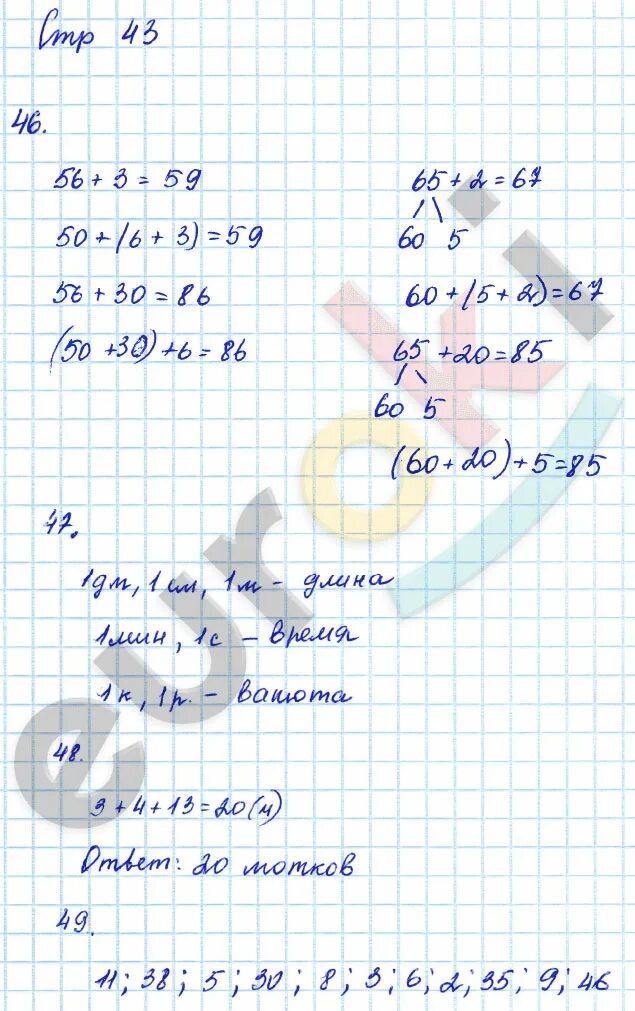 Стр 43
46.
56 + 3 = 59
50 + (6 + 3) = 59
56 + 30 = 86
(50 + 30) + 6 = 86
65 + 2 = 67
60 5
60 + (5 + 2) = 67
65 + 20 = 85
60 5
(60 + 20) + 5 = 85
47.
1дм, 1см, 1м - длина
1мин, 1с - время
1к, 1р. - валюта
48.
3 + 4 + 13 = 20 (м)
Ответ: 20 мотков
49.
11; 38; 5; 30; 8; 3; 6; 2; 35; 9; 46
euroki